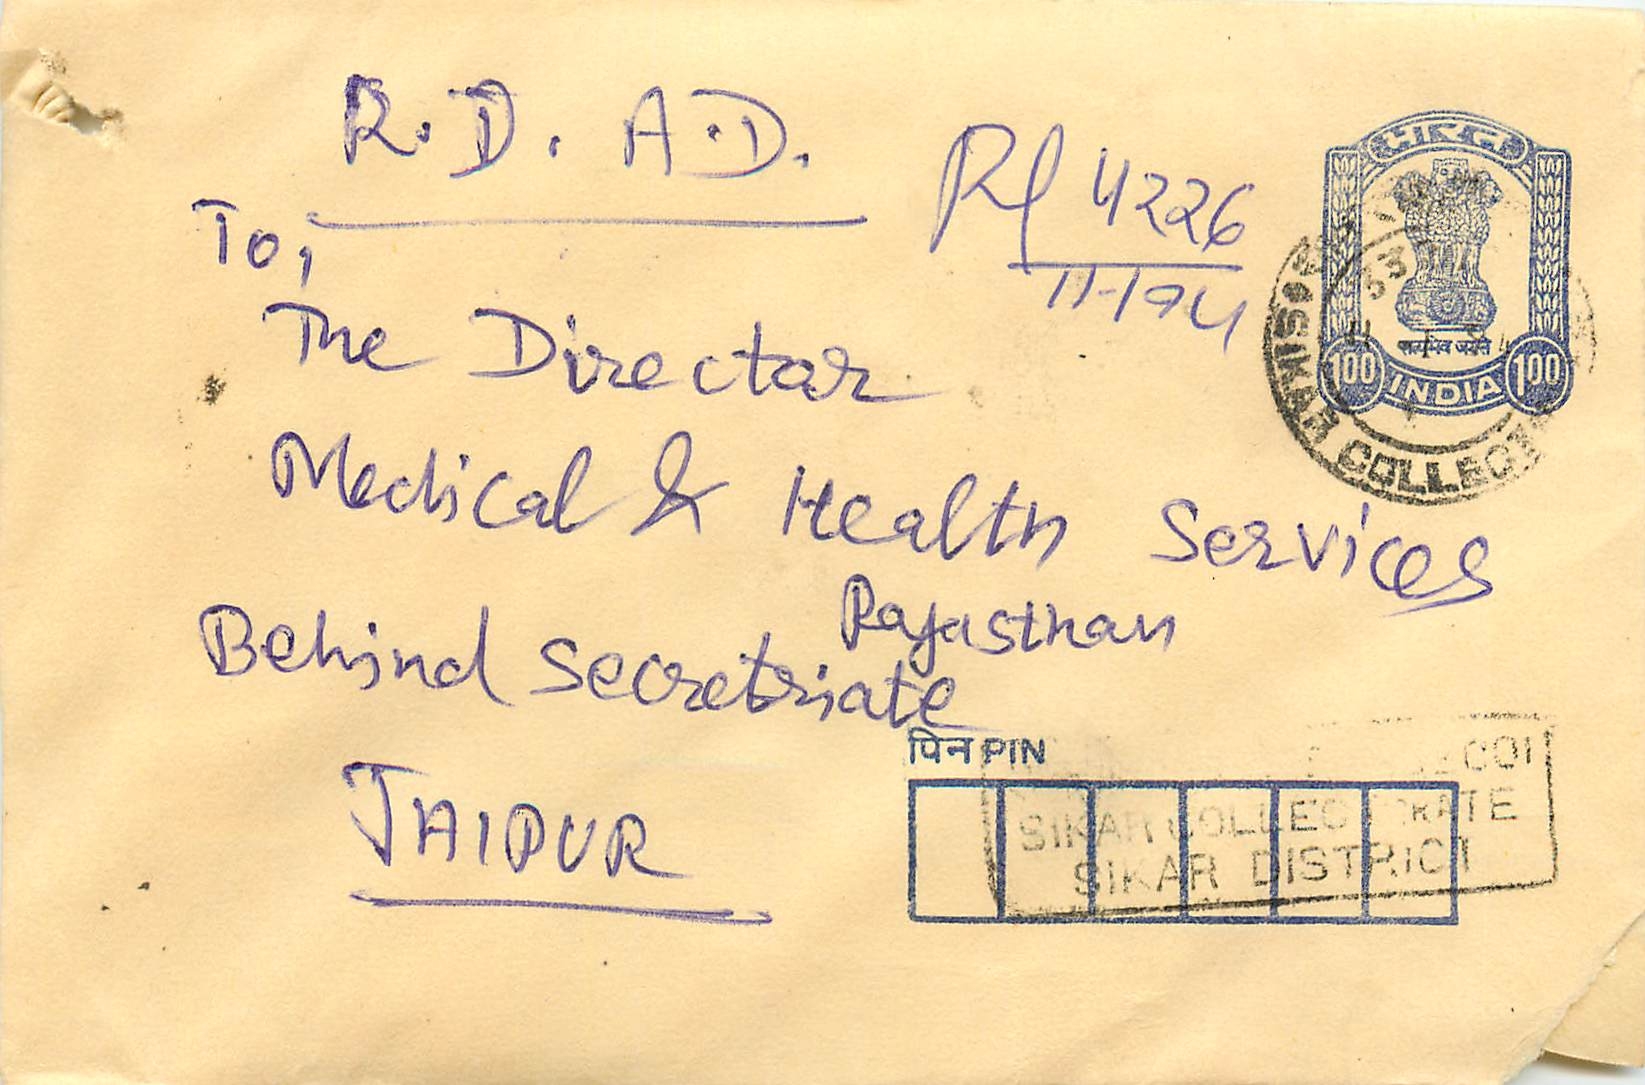 R.D. A.D.
Rl 4226
11-1-94
To,
The Director
Medical & Health Services
Rajasthan
Behind Secretriate
JAIPUR
भारत
सत्यमेव जयते
100 INDIA 100
SIKAR COLLECT
पिन PIN
SIKAR COLLECTORATE
SIKAR DISTRICT